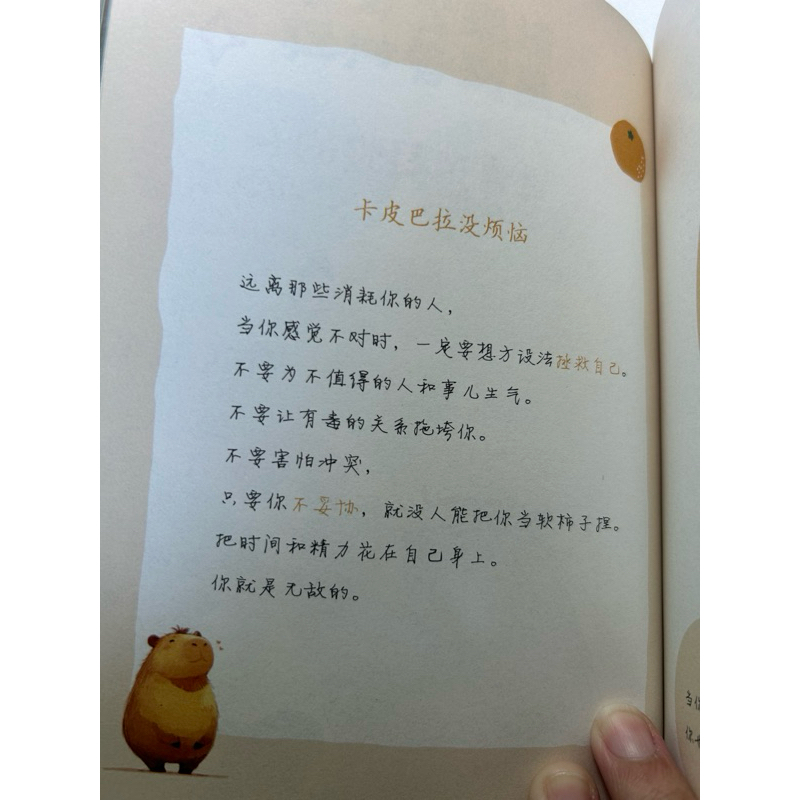 卡皮巴拉没烦恼
远离那些消耗你的人，
当你感觉不对时，一定要想方设法拯救自己。
不要为不值得的人和事儿生气。
不要让有毒的关系拖垮你。
不要害怕冲突，
只要你不妥协，就没人能把你当软柿子捏。
把时间和精力花在自己身上。
你就是无敌的。
当你
你